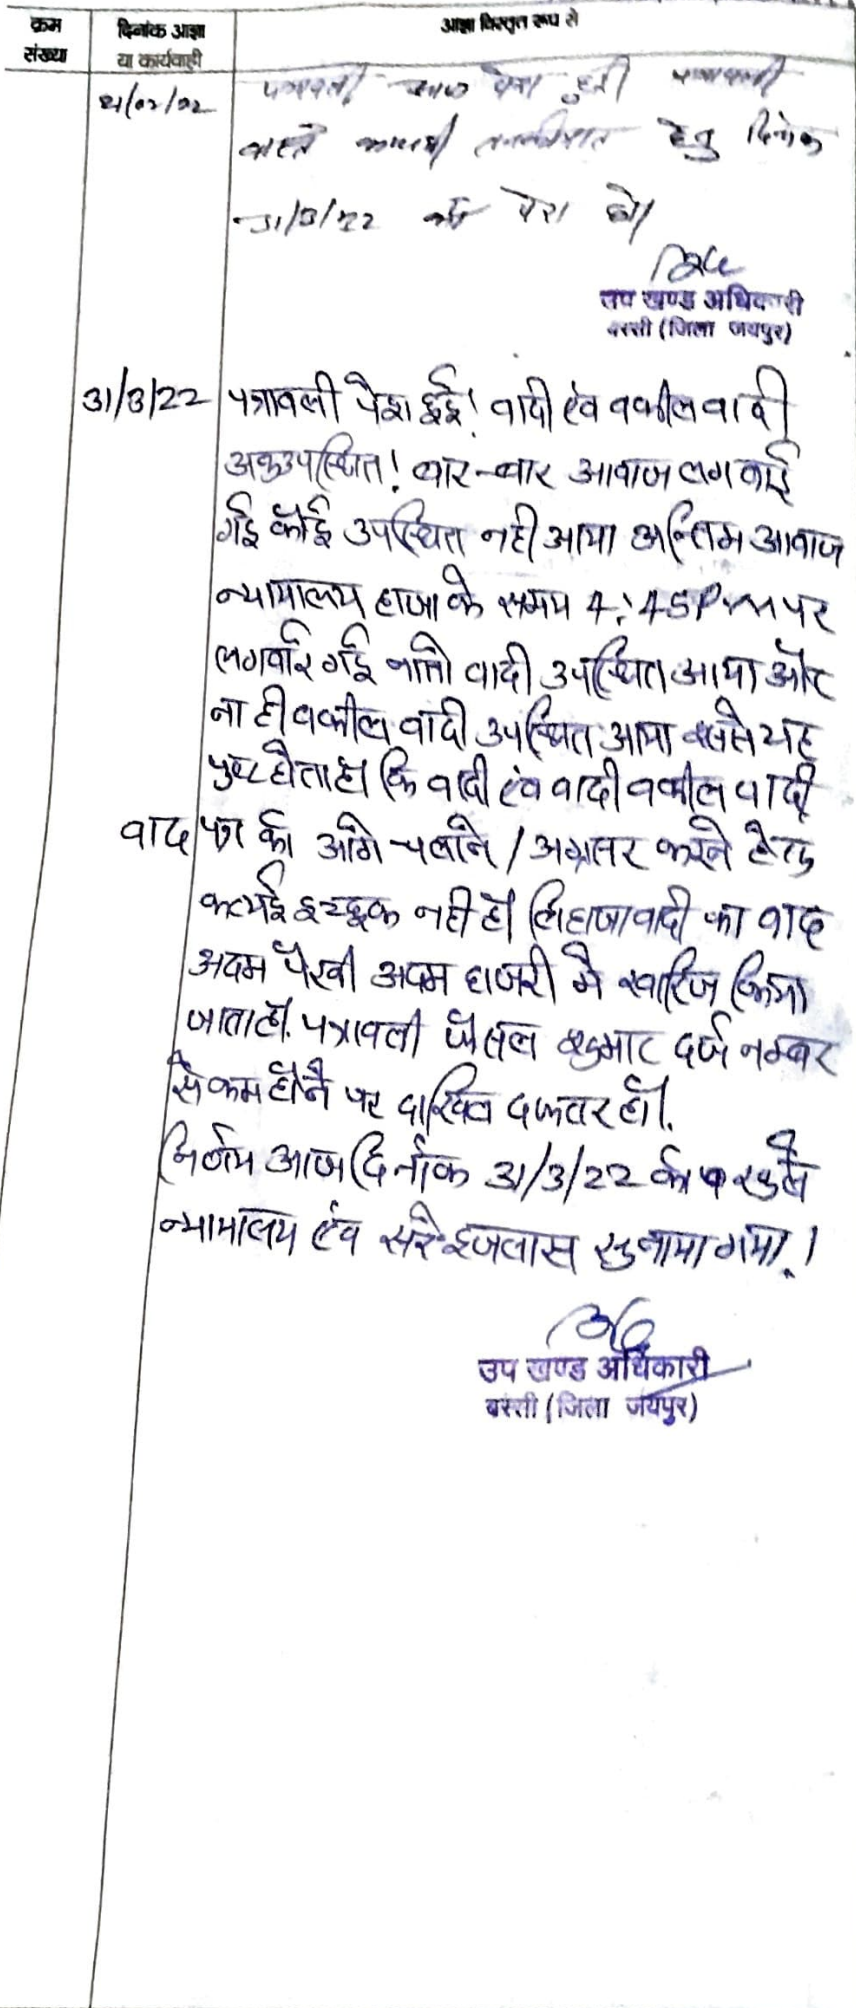 क्रम दिनांक आज्ञा आज्ञा विस्तृत रूप से
संख्या या कार्यवाही
पत्रावली आज पेश हुई पत्रावली
वास्ते हेतु दिनांक
31/3/22 को पेश हो।
उप खण्ड अधिकारी
बस्सी (जिला जयपुर)
31/3/22 पत्रावली पेश हुई! वादी एंव वकील वादी
अनुउपस्थित! बार-बार आवाज लगवाई
गई कोई उपस्थित नही आया अन्तिम आवाज
न्यायालय हाजा के समय 4:45 PM पर
लगवाई गई नातो वादी उपस्थित आया और
ना ही वकील वादी उपस्थित आया इससे यह
पुष्ट होता है कि वादी एंव वादी वकील वादी
वाद पत्र को आगे चलाने / अग्रसर करने हेतु
कत्यई इच्छुक नही है। लिहाजा वादी का वाद
अदम पैरवी अदम हाजरी मे खारिज किया
जाता है. पत्रावली फैसल शुमार दर्ज नम्बर
से कम होने पर दाखिल दफ्तर हो.
निर्णय आज दिनांक 31/3/22 को खुले
न्यायालय एंव सरे इजलास सुनाया गया.!
उप खण्ड अधिकारी
बस्सी (जिला जयपुर)